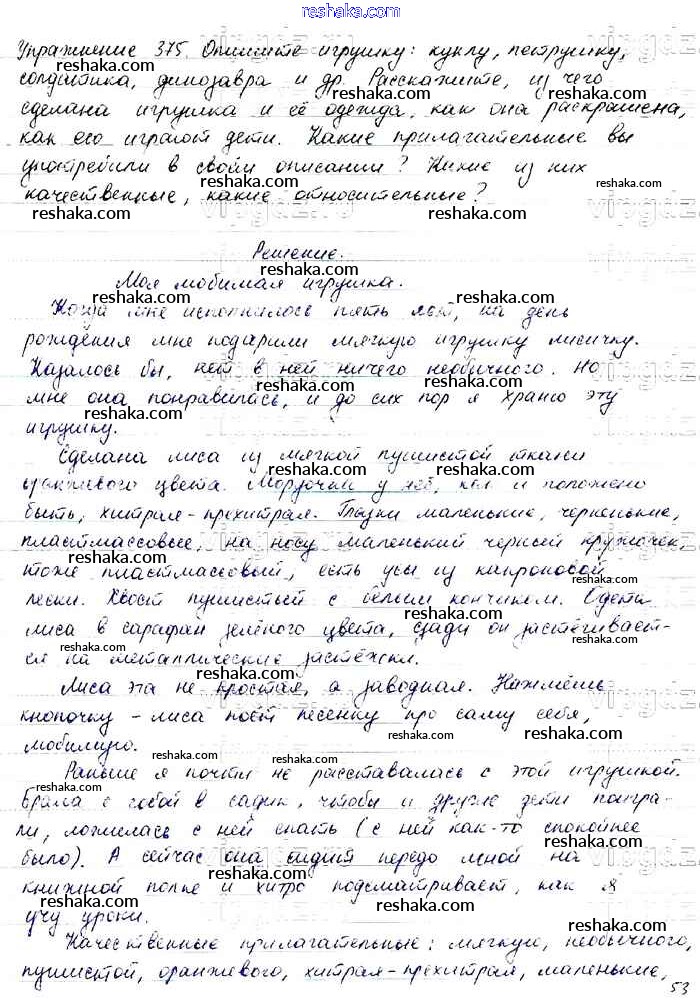 reshaka.com
Упражнение 375. Опишите игрушку: куклу, петрушку,
солдатика, динозавра и др. Расскажите, из чего
сделана игрушка и её одежда, как она раскрашена,
как ею играют дети. Какие прилагательные вы
употребили в своём описании? Какие из них
качественные, какие относительные?
Решение.
Моя любимая игрушка.
Когда мне исполнилось пять лет, на день
рождения мне подарили мягкую игрушку лисичку.
Казалось бы, нет в ней ничего необычного. Но
мне она понравилась, и до сих пор я храню эту
игрушку.
Сделана лиса из мягкой пушистой ткани
оранжевого цвета. Мордочка у неё, как и положено
быть, хитрая-прехитрая. Глазки маленькие, черненькие,
пластмассовые, на носу маленький черный кружочек,
тоже пластмассовый, есть усы из капроновой
лески. Хвост пушистый с белым кончиком. Одета
лиса в сарафан зелёного цвета, сзади он застёгивает-
ся на металлические застёжки.
Лиса эта не простая, а заводная. Нажмёшь
кнопочку - лиса поёт песенку про саму себя,
любимую.
Раньше я почти не расставалась с этой игрушкой.
Брала с собой в садик, чтобы и другие дети поигра-
ли, ложилась с ней спать (с ней как-то спокойнее
было). А сейчас она сидит передо мной на
книжной полке и хитро подсматривает, как я
учу уроки.
Качественные прилагательные: мягкую, необычного,
пушистой, оранжевого, хитрая-прехитрая, маленькие,
53